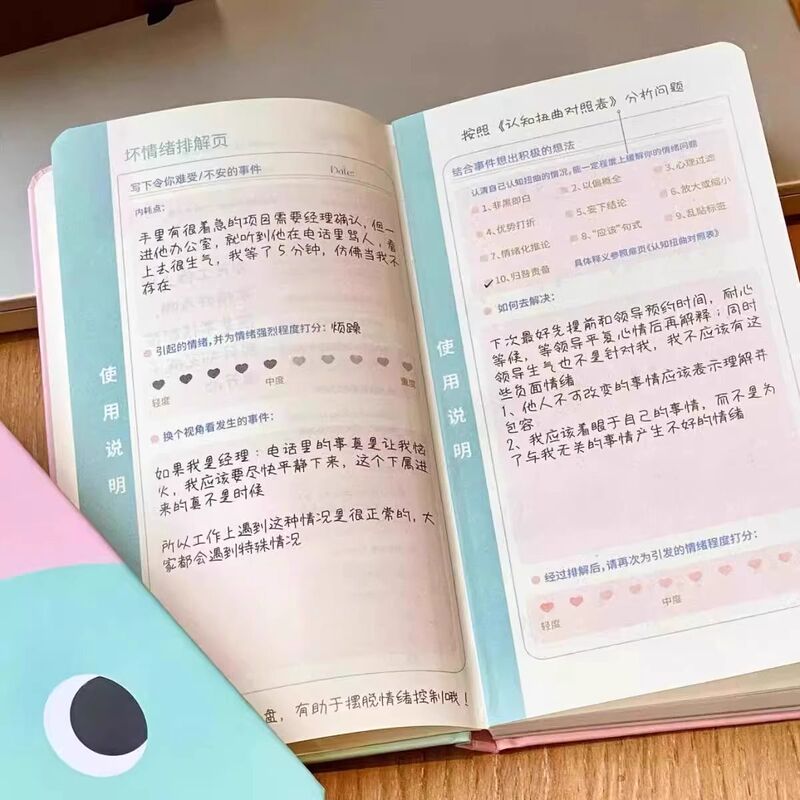 坏情绪排解页
写下令你难受/不安的事件 Date:
内耗点:
手里有很着急的项目需要经理确认,但一
进他办公室,就听到他在电话里骂人,看
上去很生气,我等了5分钟,仿佛当我不
存在
引起的情绪,并为情绪强烈程度打分: 烦躁
轻度 中度 重度
换个视角看发生的事件:
如果我是经理:电话里的事真是让我恼
火,我应该要尽快平静下来,这个下属进
来的真不是时候
所以工作上遇到这种情况是很正常的,大
家都会遇到特殊情况
使用说明
盘,有助于摆脱情绪控制哦!
按照《认知扭曲对照表》分析问题
结合事件想出积极的想法
认清自己认知扭曲的情况,能一定程度上缓解你的情绪问题
1、非黑即白 2、以偏概全 3、心理过滤
4、优势打折 5、妄下结论 6、放大或缩小
7、情绪化推论 8、“应该”句式 9、乱贴标签
✓ 10、归咎责备 具体释义参照扉页《认知扭曲对照表》
如何去解决:
下次最好先提前和领导预约时间,耐心
等候,等领导平复心情后再解释;同时
领导生气也不是针对我,我不应该有这
些负面情绪
1、他人不可改变的事情应该表示理解并
包容
2、我应该着眼于自己的事情,而不是为
了与我无关的事情产生不好的情绪
经过排解后,请再次为引发的情绪程度打分:
轻度 中度
使用说明